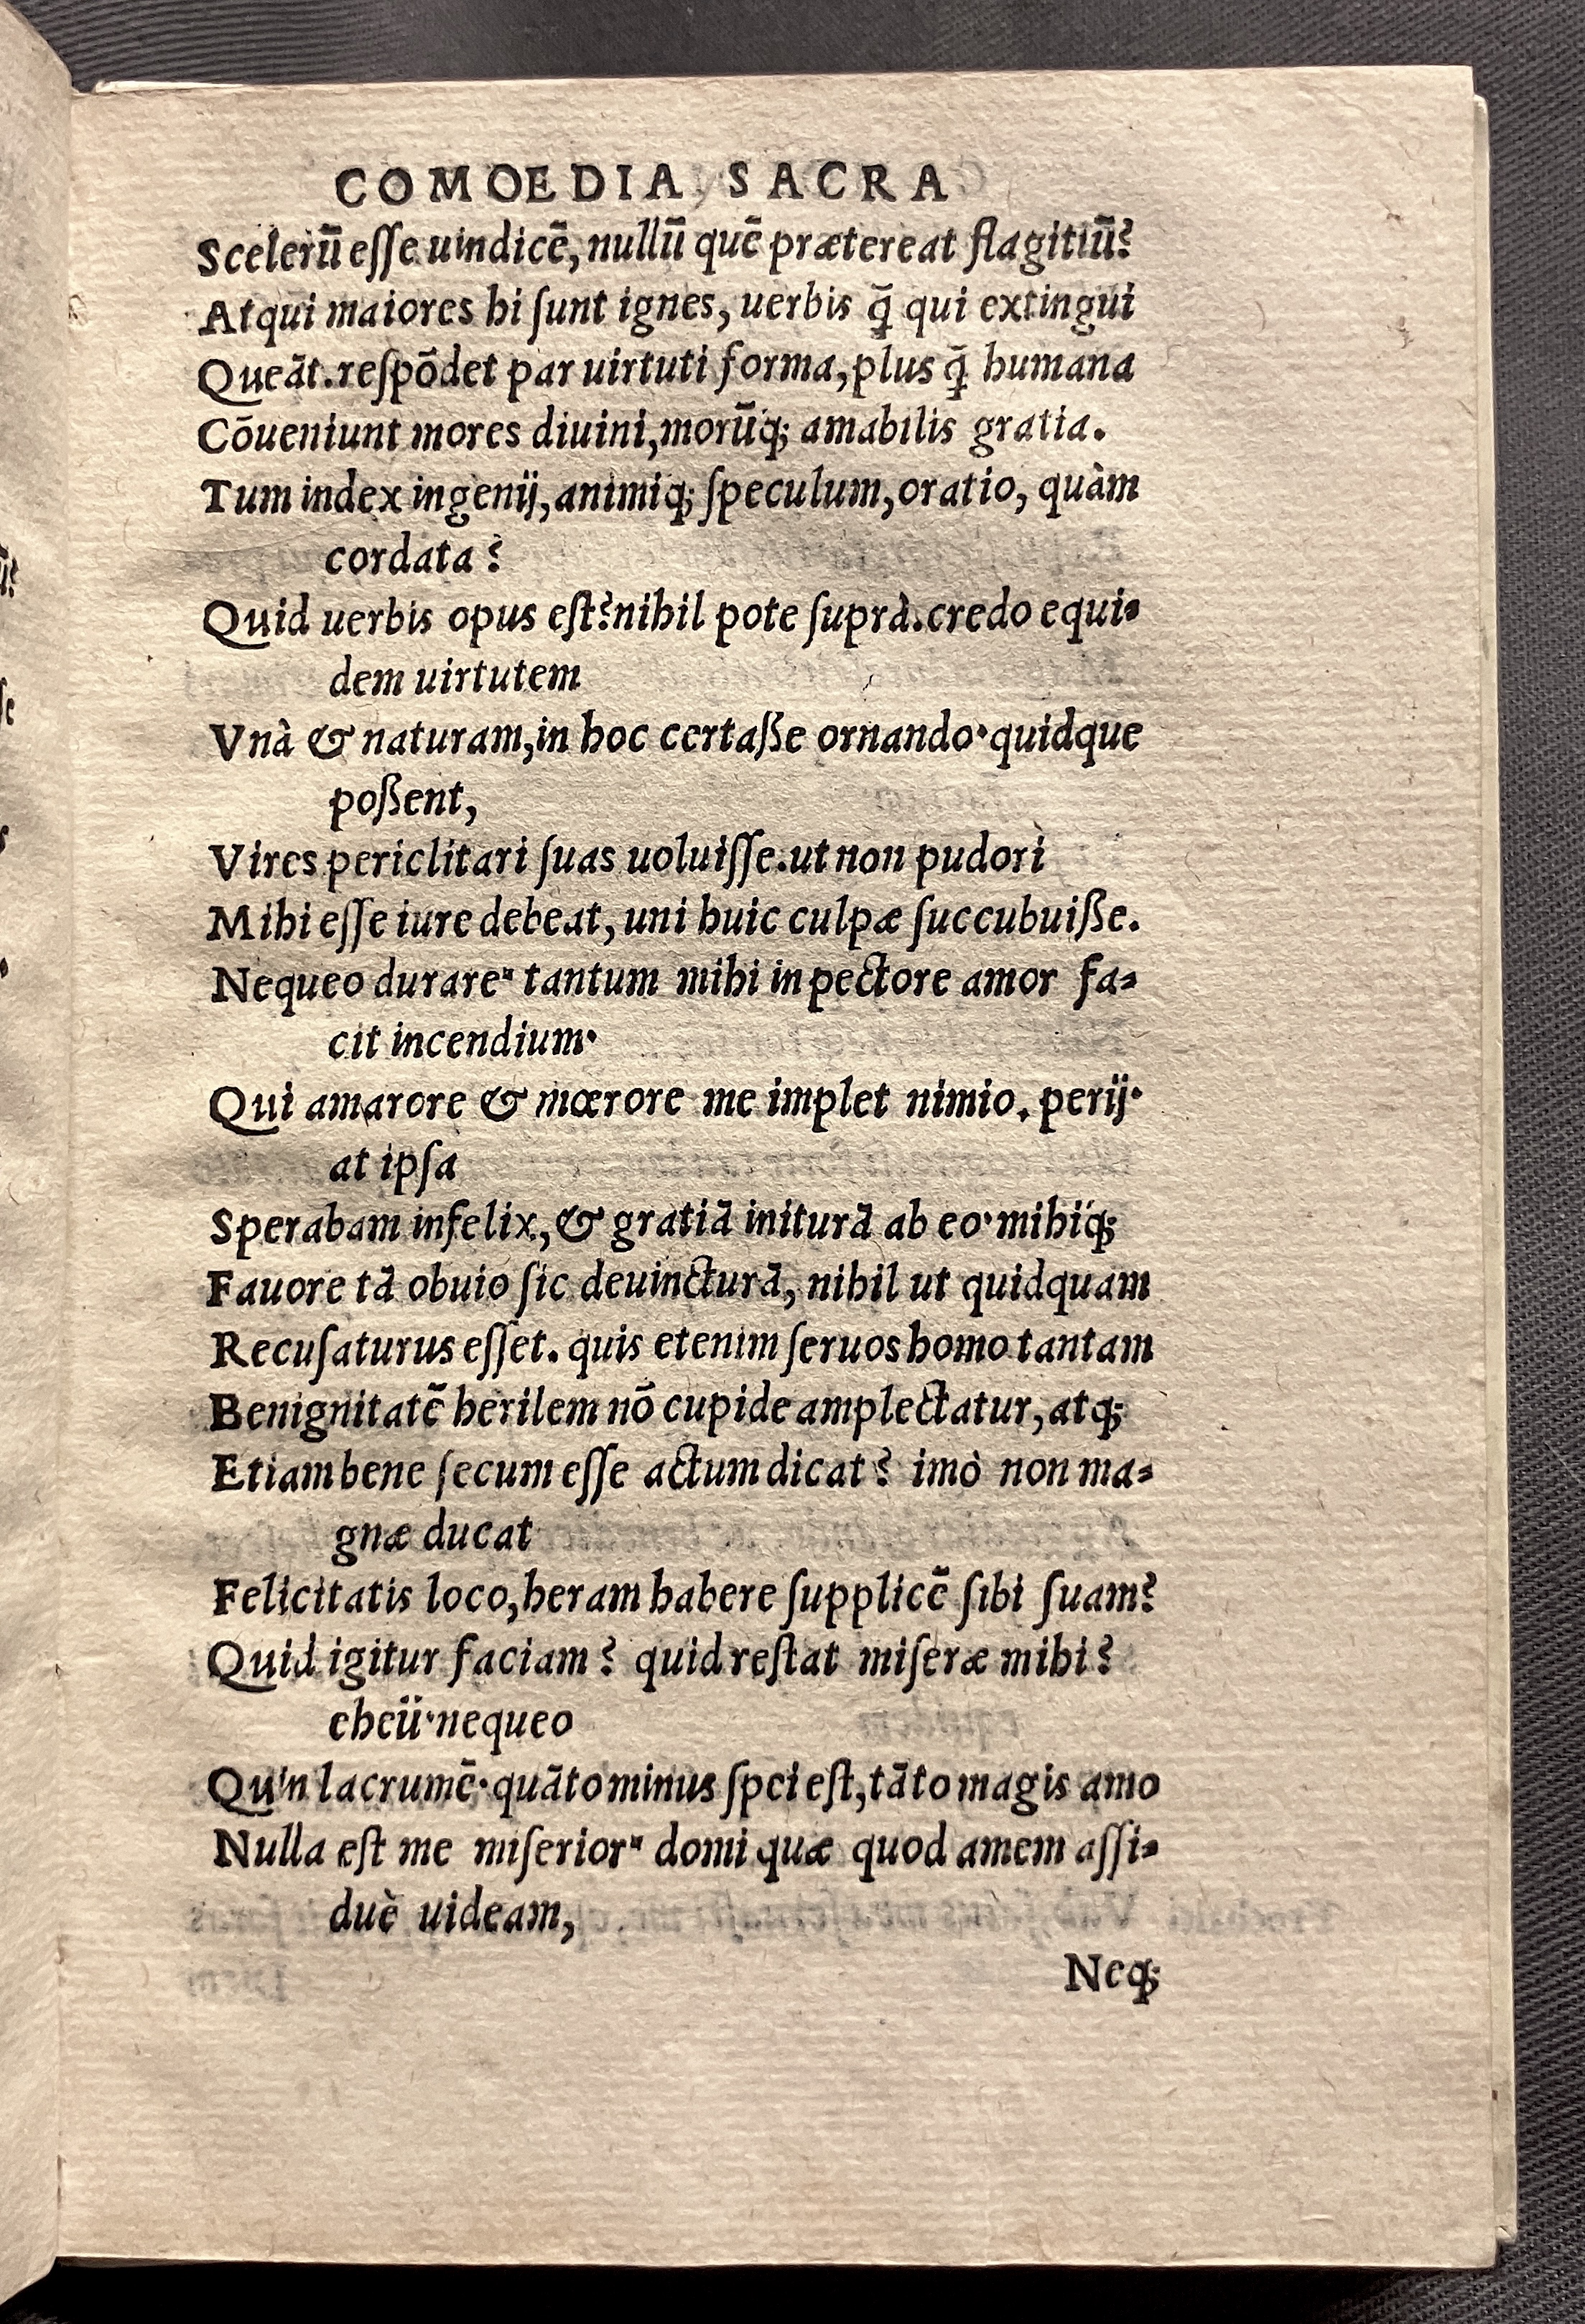 COMOEDIA SACRA
Scelerū eſſe uindicē, nullū quē prætereat flagitiū?
Atqui maiores hi ſunt ignes, uerbis q̄ qui extingui
Queāt. reſpōdet par uirtuti forma, plus q̄ humana
Cōueniunt mores diuini, morūq; amabilis gratia.
Tum index ingenij, animiq; ſpeculum, oratio, quàm
cordata?
Quid uerbis opus eſt? nihil pote ſuprà. credo equi-
dem uirtutem
Vnà & naturam, in hoc certaße ornando· quidque
poßent,
Vires periclitari ſuas uoluiſſe. ut non pudori
Mihi eſſe iure debeat, uni huic culpæ ſuccubuiße.
Nequeo durare" tantum mihi in pectore amor fa-
cit incendium·
Qui amarore & mœrore me implet nimio. perij·
at ipſa
Sperabam infelix, & gratiā initurā ab eo· mihiq́;
Fauore tā obuio ſic deuincturā, nihil ut quidquam
Recuſaturus eſſet. quis etenim ſeruos homo tantam
Benignitatē herilem nō cupide amplectatur, atq;
Etiam bene ſecum eſſe actum dicat? imò non ma-
gnæ ducat
Felicitatis loco, heram habere ſupplicē ſibi ſuam?
Quid igitur faciam? quid reſtat miſeræ mihi?
eheü· nequeo
Quin lacrumē· quāto minus ſpei eſt, tāto magis amo
Nulla eſt me miſerior" domi quæ quod amem aſſi-
duè uideam,
Neq;